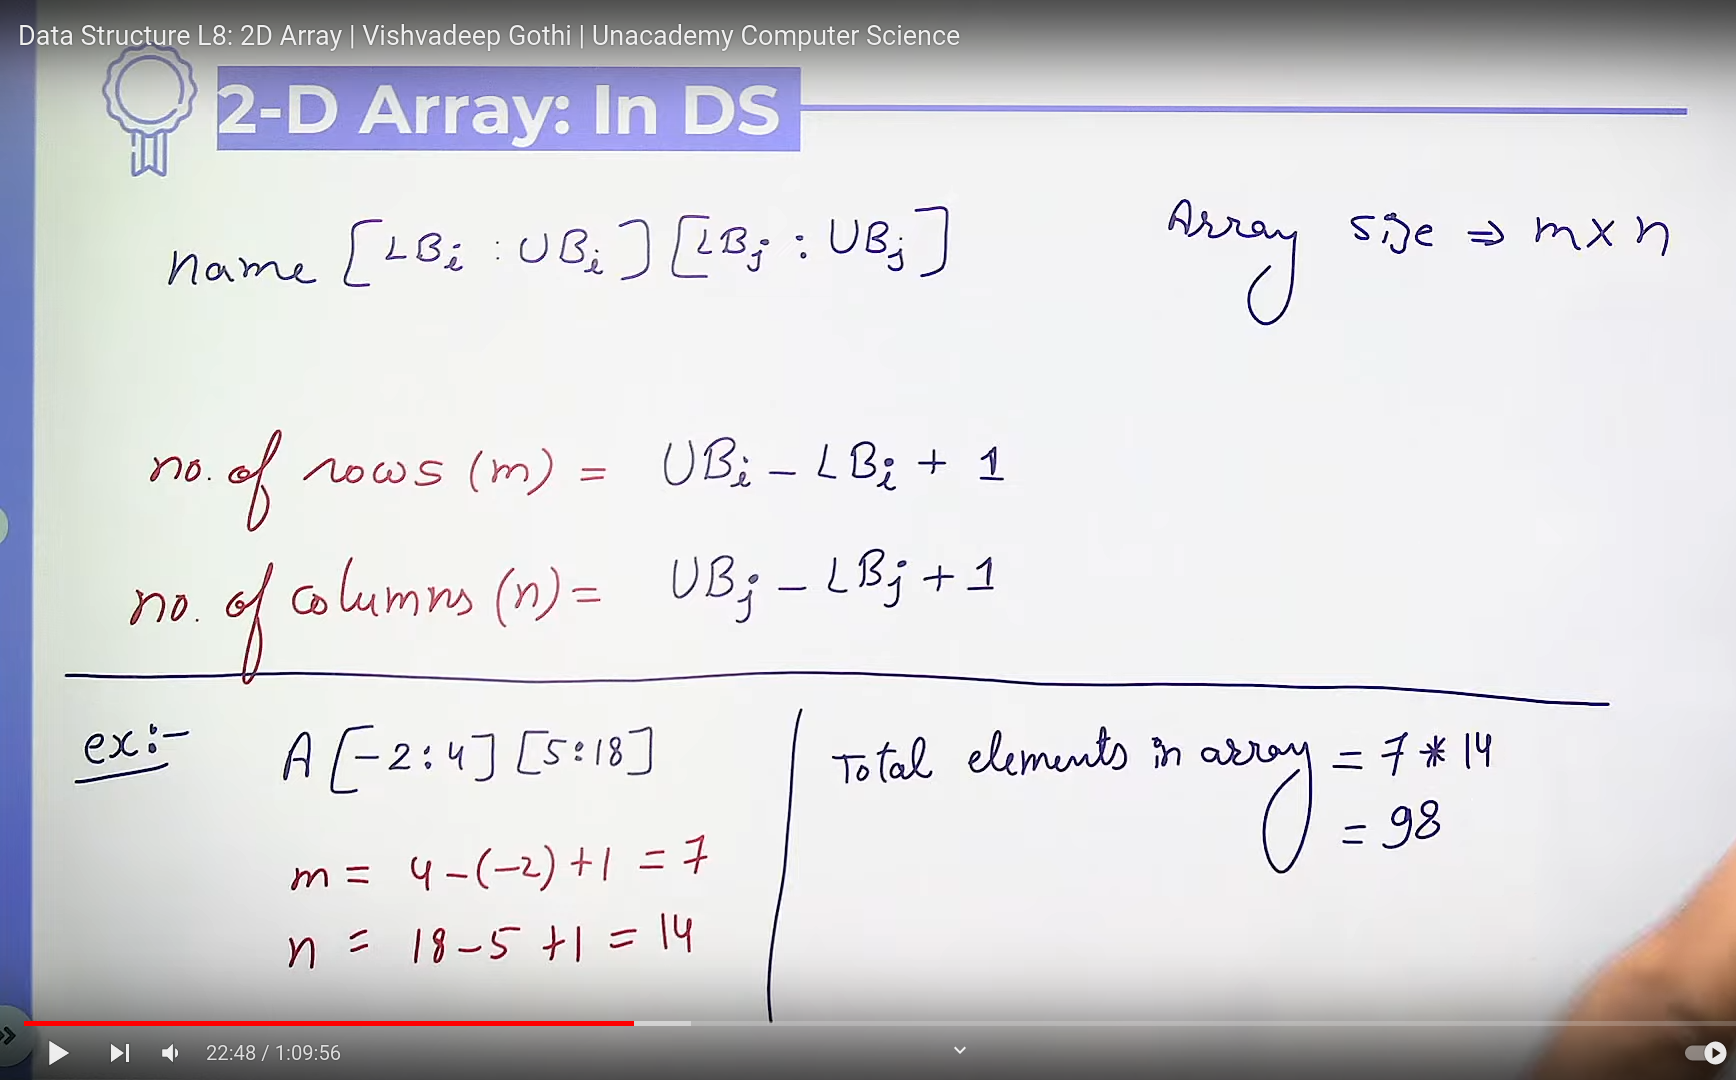 Data Structure L8: 2D Array | Vishvadeep Gothi | Unacademy Computer Science
2-D Array: In DS
name [LBi : UBi] [LBj : UBj]
Array size ⇒ m x n
no. of rows (m) = UBi - LBi + 1
no. of columns (n) = UBj - LBj + 1
ex:- A [-2:4] [5:18]
m = 4-(-2)+1 = 7
n = 18-5+1 = 14
Total elements in array = 7 * 14
= 98
22:48 / 1:09:56